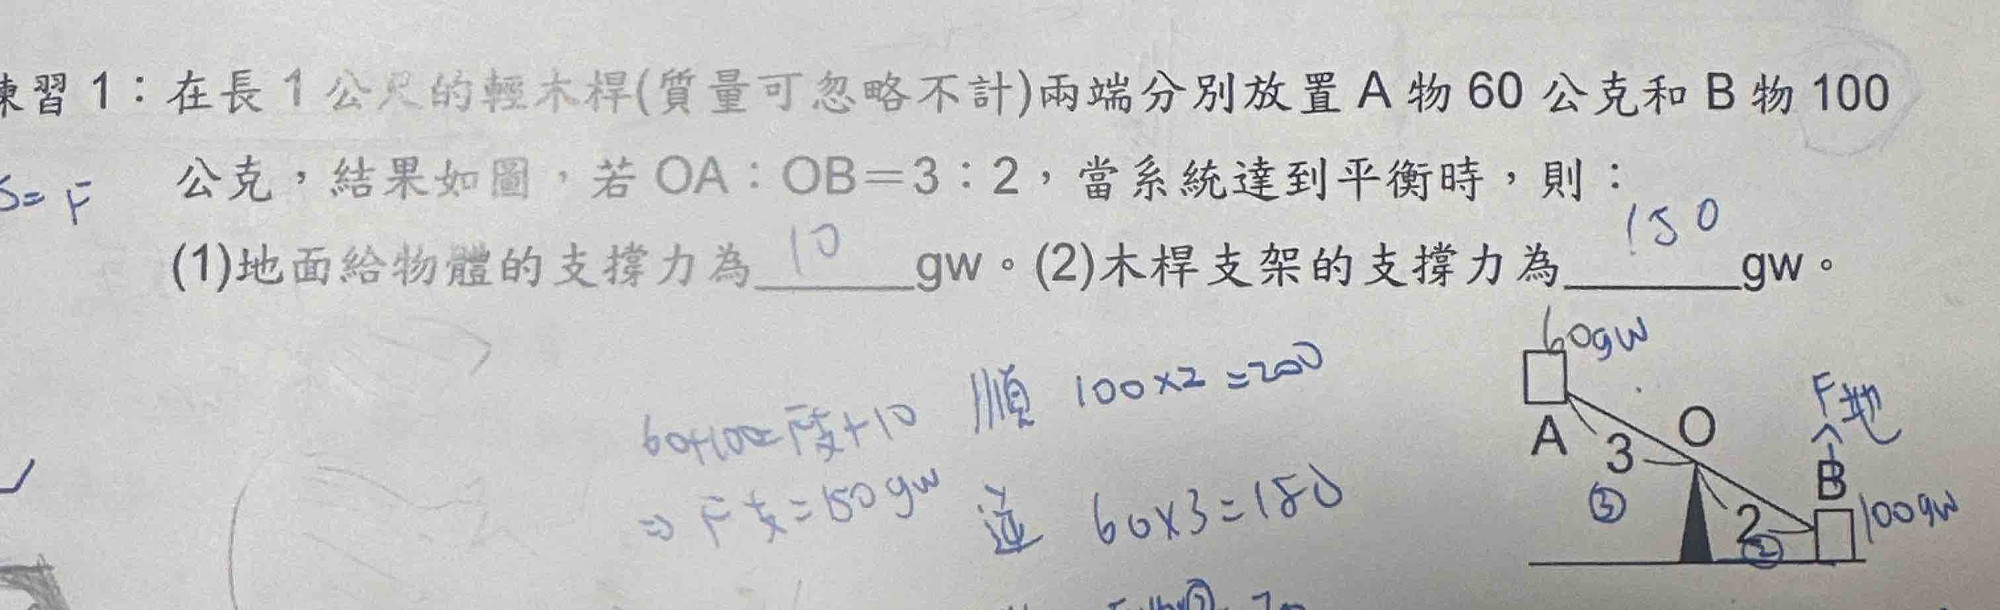 練習1：在長1公尺的輕木桿(質量可忽略不計)兩端分別放置A物60公克和B物100
公克，結果如圖，若OA：OB＝3：2，當系統達到平衡時，則：
S= F
(1)地面給物體的支撐力為 10 gw。(2)木桿支架的支撐力為 150 gw。
60+100=F支+10
⇒ F支=150gw
順 100×2=200
逆 60×3=180
60gw
A
3
③
O
F地
B
2
②
100gw